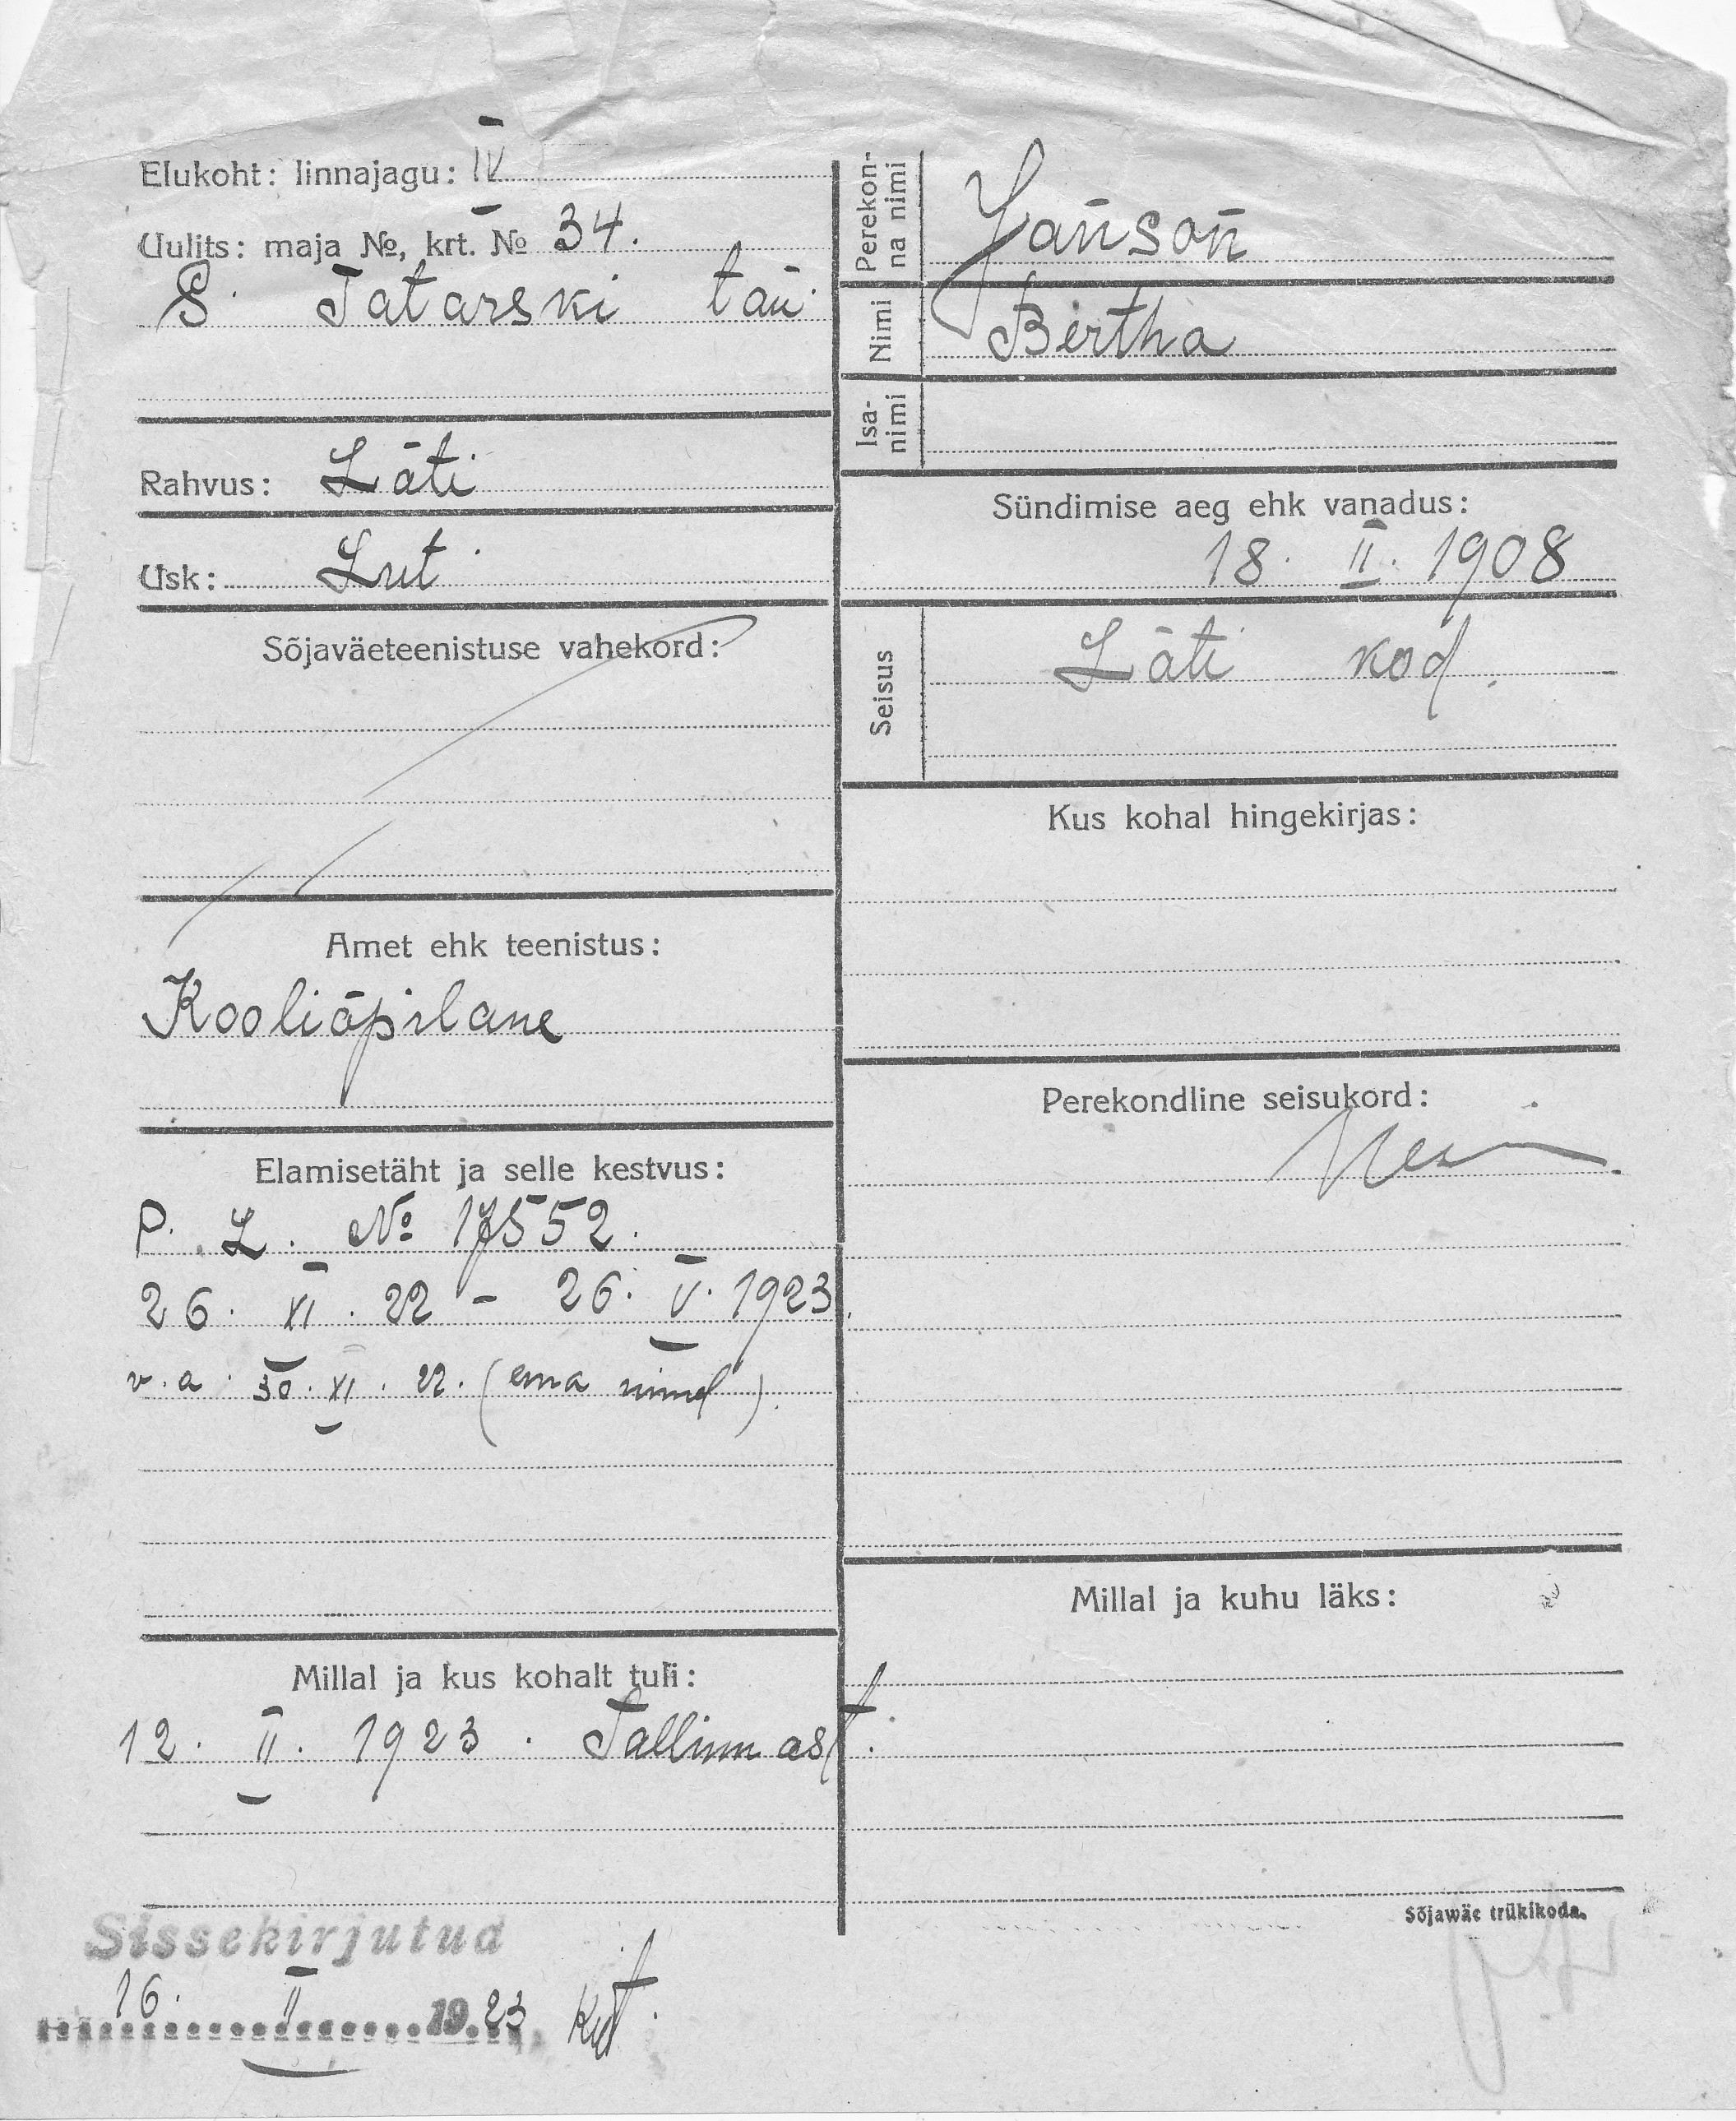 Elukoht: linnajagu: IV
Uulits: maja №, krt. № 34.
S. Tatarski tän.
Rahvus: Läti
Usk: Lut.
Sõjaväeteenistuse vahekord:
Amet ehk teenistus:
Kooliõpilane
Elamisetäht ja selle kestvus:
P. L. № 17552.
26. XI. 22 - 26. V. 1923.
v. a. 30. XI. 22. (ema nimel).
Millal ja kus kohalt tuli:
12. II. 1923. Tallinnast.
Sissekirjutud
16. II 1923
Perekonna nimi
Janson
Nimi
Bertha
Isanimi
Sündimise aeg ehk vanadus:
18. II. 1908
Seisus
Läti kod.
Kus kohal hingekirjas:
Perekondline seisukord:
Millal ja kuhu läks:
Sõjawäe trükikoda.